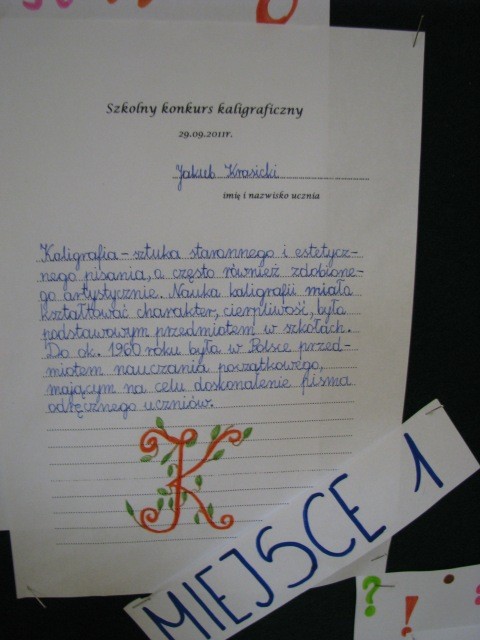 Szkolny konkurs kaligraficzny
29.09.2011r.
Jakub Krasicki
imię i nazwisko ucznia
Kaligrafia – sztuka starannego i estetycz-
nego pisania, a często również zdobione-
go artystycznie. Nauka kaligrafii miała
kształtować charakter, cierpliwość, była
podstawowym przedmiotem w szkołach.
Do ok. 1960 roku była w Polsce przed-
miotem nauczania początkowego,
mającym na celu doskonalenie pisma
odręcznego uczniów.
K
MIEJSCE 1
? !